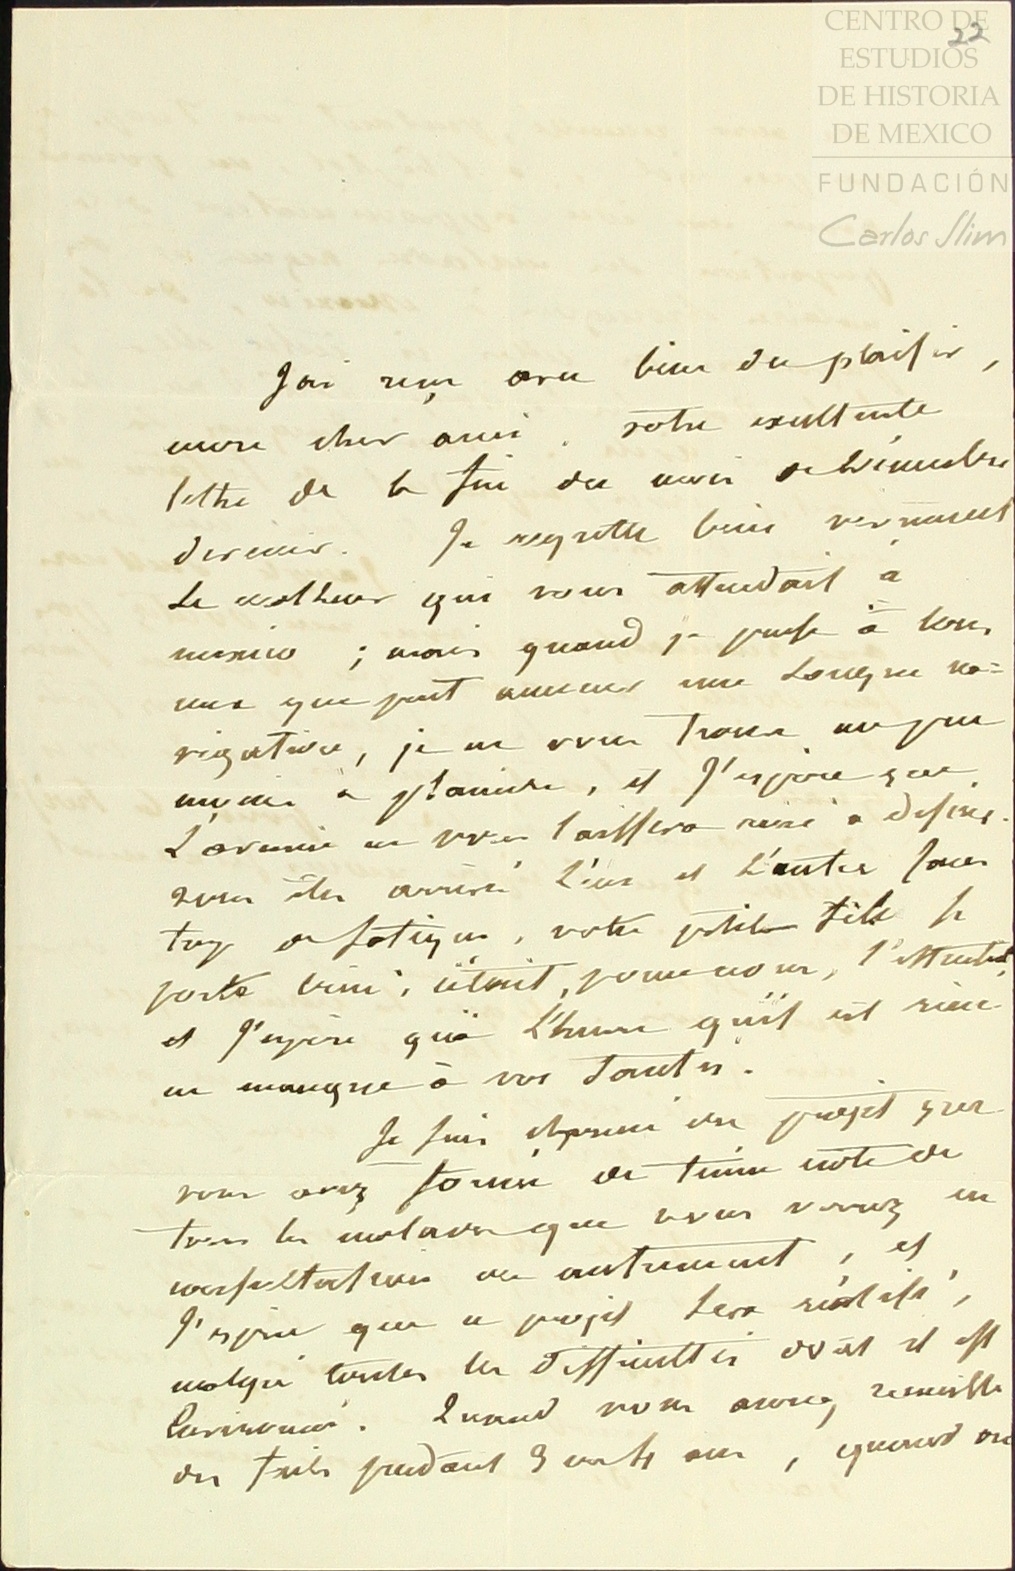 CENTRO DE
ESTUDIOS
DE HISTORIA
DE MEXICO
FUNDACIÓN
Carlos Slim
22
J'ai reçu avec bien du plaisir,
mon cher ami, votre excellente
lettre de la fin du mois de Décembre
dernier. Je regrette bien vivement
le malheur qui vous attendait à
mexico ; mais quand je pense à tous
ceux que peut amener une Longue na=
vigation, je ne vous trouve un peu
moins à plaindre, et J'espère que
L'avenir ne vous laissera rien à desirer.
vous êtes arrivé L'un et L'autre sans
trop de fatigue, votre petite fille se
porte bien ; c'était, pour nous, l'essentiel,
et J'espère qu'à L'heure qu'il est rien
ne manque à vos santés.
Je suis charmé du projet que
vous avez formé de tenir note de
tous les malades que vous verrez en
consultation ou autrement, et
J'espère que ce projet sera réalisé,
malgré toutes les difficultés dont il est
Environné. Quand vous aurez recueilli
des faits pendant 3 ou 4 ans, quand on